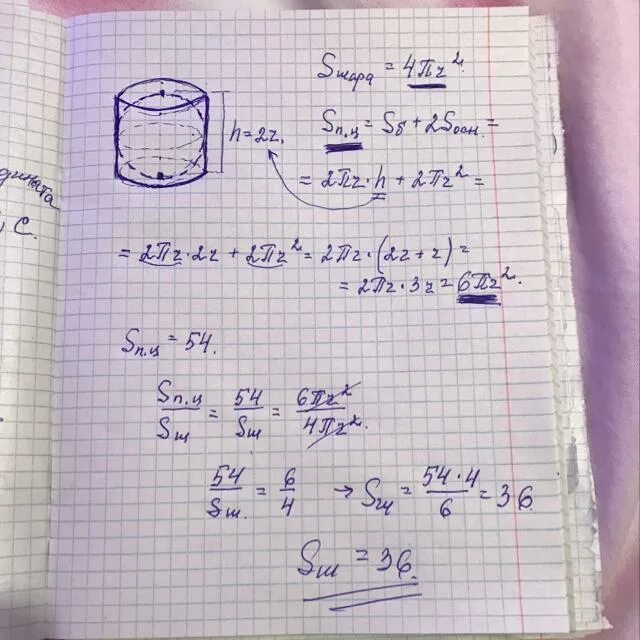 Sшара = 4πr².
h = 2r.
Sп.ц = Sб + 2Sосн. =
= 2πr · h + 2πr² =
= 2πr · 2r + 2πr² = 2πr · (2r + r) =
= 2πr · 3r = 6πr².
Sп.ц = 54.
Sп.ц/Sш = 54/Sш = 6πr²/4πr².
54/Sш. = 6/4 → Sш = 54·4/6 = 36
Sш = 36.
, C.